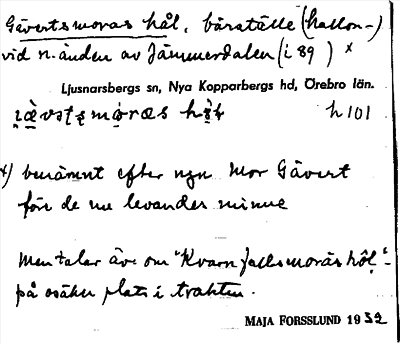 Gävertsmoras hål, bärställe (hallon-)
vid n. änden av Jämmerdalen (i 89) x
Ljusnarsbergs sn, Nya Kopparbergs hd, Örebro län.
h 101
x) benämnt efter ngn Mor Gävert
före de nu levandes minne
Men talar äv. om "Kvarnfallsmorás hôl"-
på osäker plats i trakten.
MAJA FORSSLUND 1932